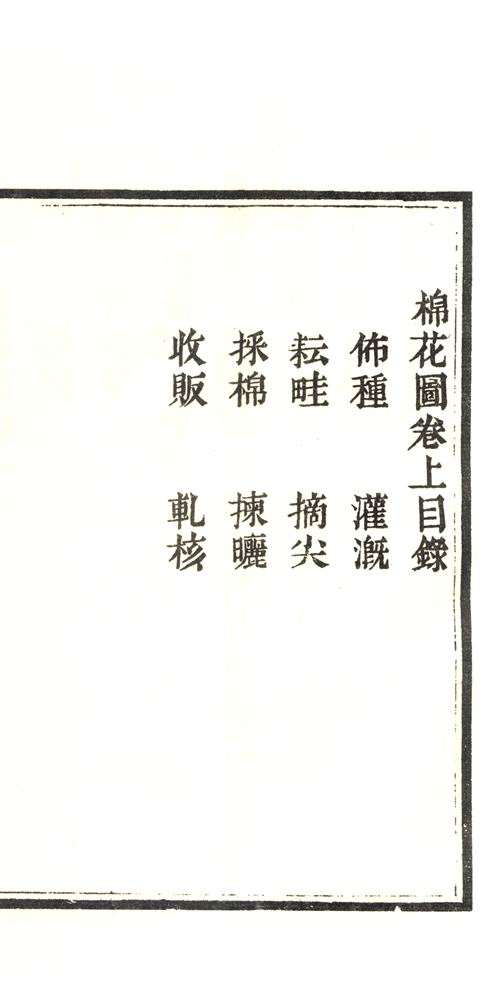 棉花圖卷上目錄
佈種　灌溉
耘畦　摘尖
採棉　揀曬
收販　軋核